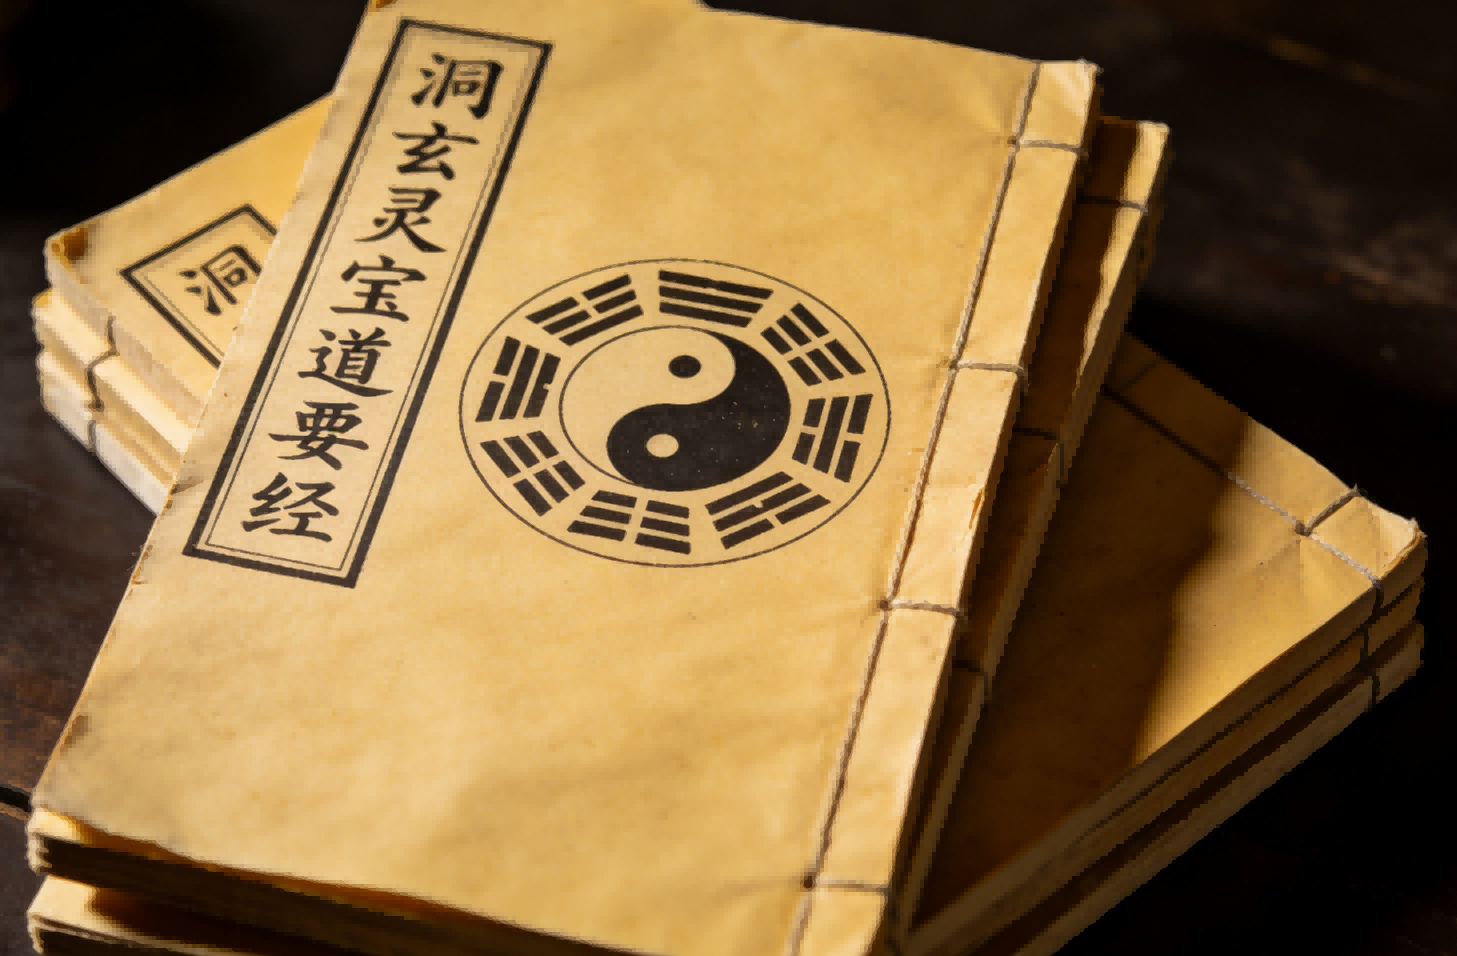 洞玄灵宝道要经
洞